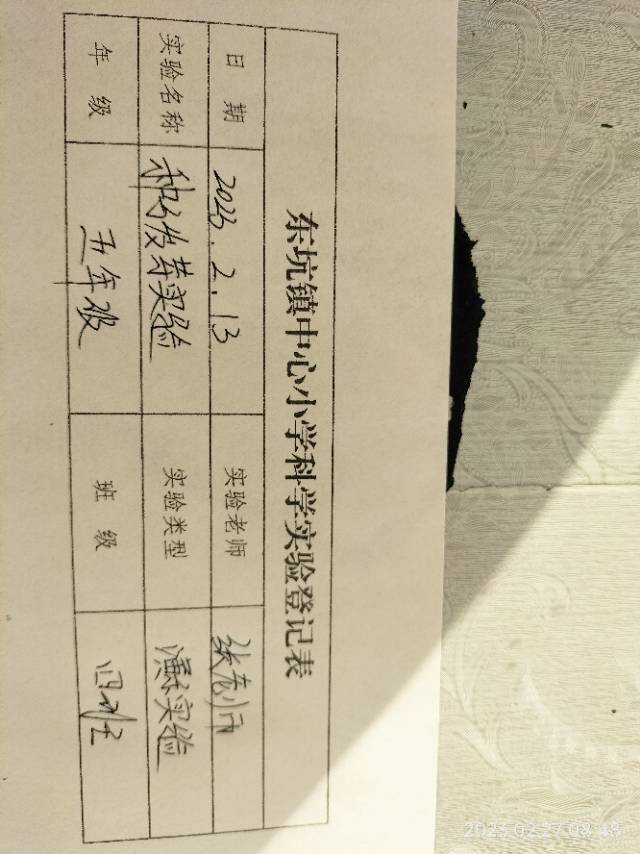 东坑镇中心小学科学实验登记表
日 期 2025.2.13 实验老师 张老师
实验名称 种子发芽实验 实验类型 演示实验
年 级 五年级 班 级 四班
2025.02.27 08:48